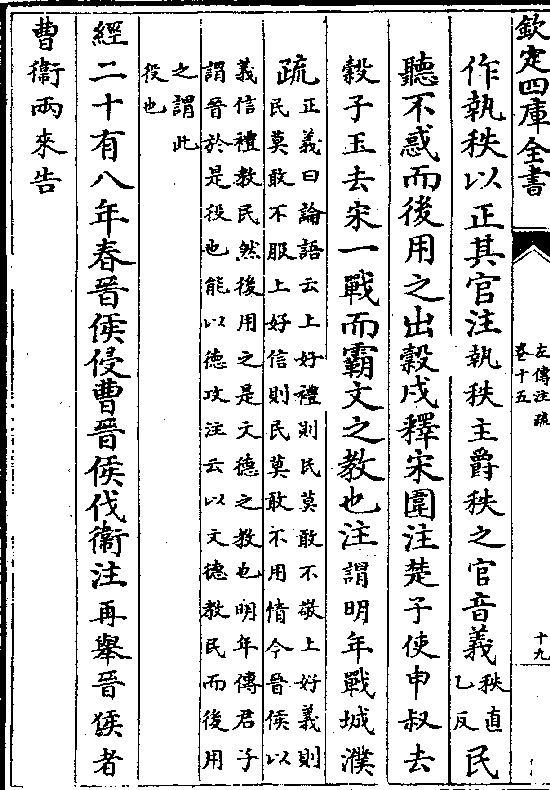 欽定四庫全書
左傳注疏
卷十五
十九
作執秩以正其官注執秩主爵秩之官音義秩直
乙反民
聽不惑而後用之出穀戍釋宋圍注楚子使申叔去
穀子玉去宋一戰而霸文之教也注謂明年戰城濮
疏正義曰論語云上好禮則民莫敢不敬上好義則
民莫敢不服上好信則民莫敢不用情今晉侯以
義信禮教民然後用之是文德之教也明年傳君子
謂晉於是役也能以德攻注云以文德教民而後用
之謂此
役也
經二十有八年春晉侯侵曹晉侯伐衞注再舉晉侯者
曹衞兩來告